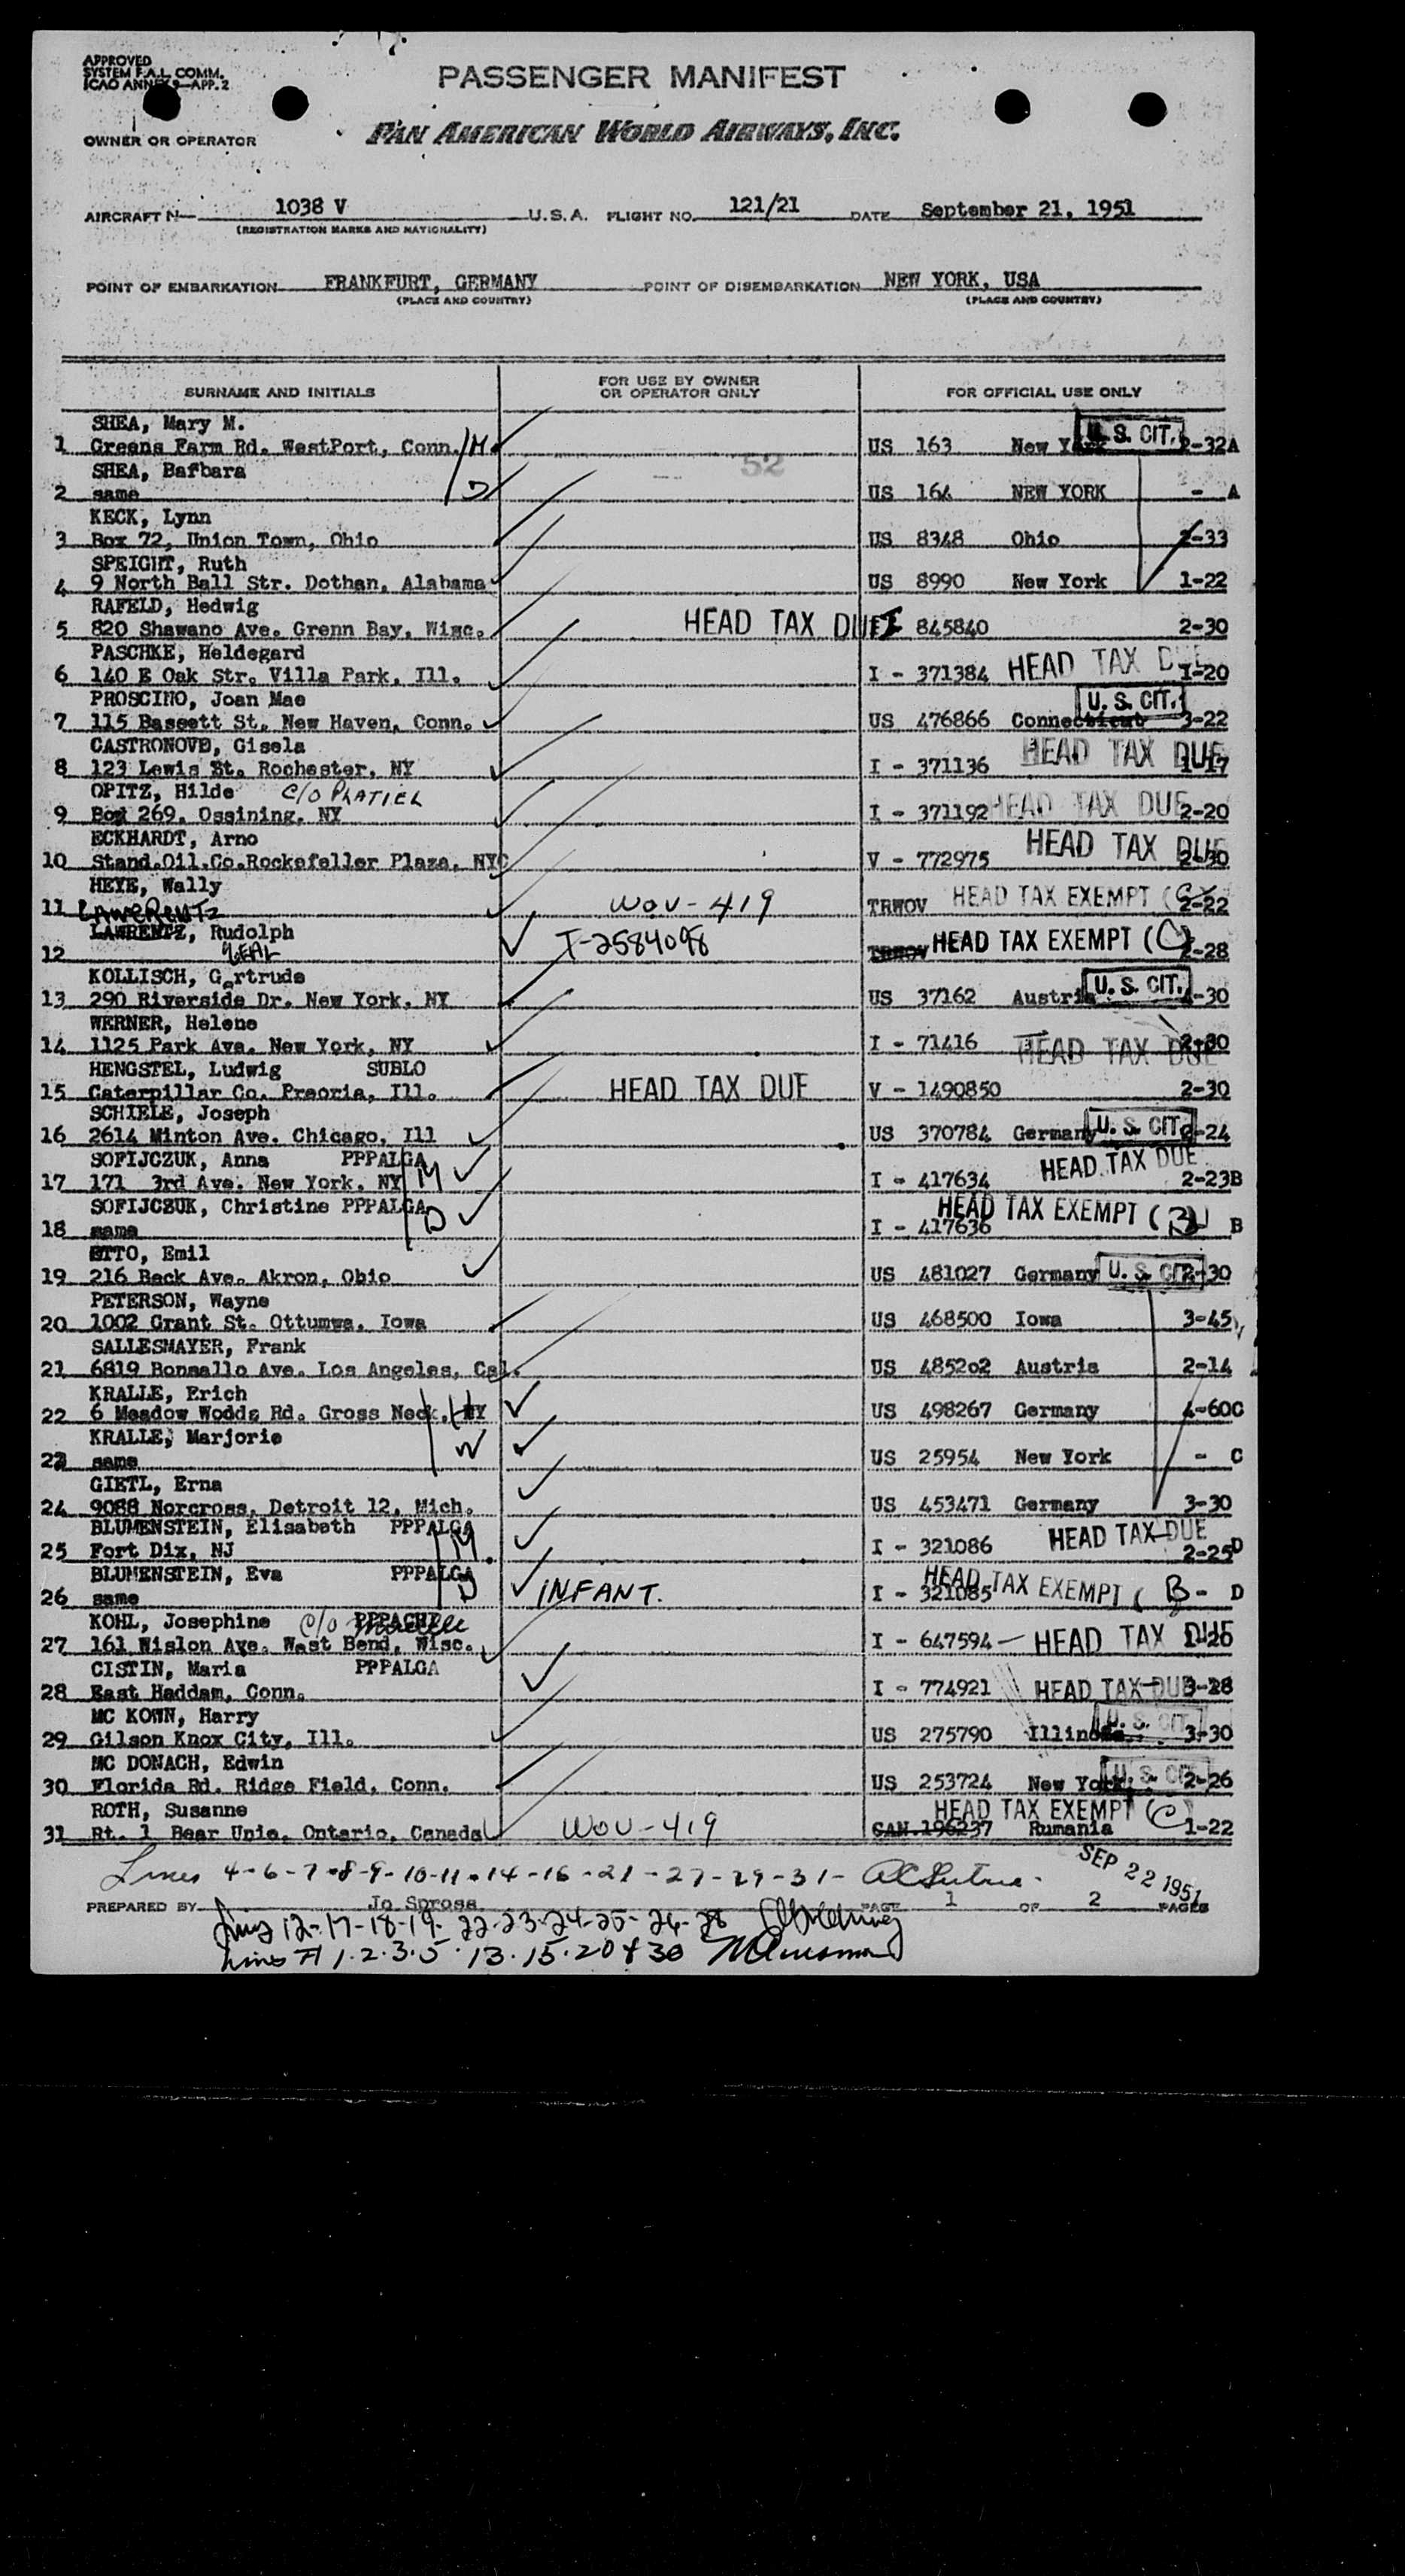 APPROVED
SYSTEM F.A.L. COMM.
ICAO ANNEX 9—APP. 2
PASSENGER MANIFEST
OWNER OR OPERATOR
PAN AMERICAN WORLD AIRWAYS, INC.
AIRCRAFT N— 1038 V U.S.A. FLIGHT NO. 121/21 DATE September 21, 1951
(REGISTRATION MARKS AND NATIONALITY)
POINT OF EMBARKATION FRANKFURT, GERMANY POINT OF DISEMBARKATION NEW YORK, USA
(PLACE AND COUNTRY) (PLACE AND COUNTRY)
SURNAME AND INITIALS FOR USE BY OWNER OR OPERATOR ONLY FOR OFFICIAL USE ONLY
SHEA, Mary M.
1 Greens Farm Rd. WestPort, Conn. M US 163 New York U. S. CIT. 2-32A
SHEA, Barbara 52
2 same D US 164 NEW YORK - A
KECK, Lynn
3 Box 72, Union Town, Ohio US 8348 Ohio 2-33
SPEIGHT, Ruth
4 9 North Ball Str. Dothan, Alabama US 8990 New York 1-22
RAFELD, Hedwig
5 820 Shawano Ave. Grenn Bay, Wisc. HEAD TAX DUE I 845840 2-30
PASCHKE, Heldegard
6 140 E Oak Str. Villa Park, Ill. I - 371384 HEAD TAX DUE 1-20
PROSCINO, Joan Mae
7 115 Bassett St. New Haven, Conn. US 476866 Connecticut U. S. CIT. 3-22
CASTRONOVO, Gisela
8 123 Lewis St. Rochester, NY I - 371136 HEAD TAX DUE 1-17
OPITZ, Hilde C/O PLATIEL
9 Box 269, Ossining, NY I - 371192 HEAD TAX DUE 2-20
ECKHARDT, Arno
10 Stand.Oil.Co.Rockefeller Plaza, NYC V - 772975 HEAD TAX DUE 2-30
HEYE, Wally
11 WOV-419 TRWOV HEAD TAX EXEMPT (C) 2-22
LAWRENTZ, Rudolph
12 T-2584098 TRWOV HEAD TAX EXEMPT (C) 2-28
KOLLISCH, Gertrude
13 290 Riverside Dr. New York, NY US 37162 Austria U. S. CIT. 4-30
WERNER, Helene
14 1125 Park Ave. New York, NY I - 71416 HEAD TAX DUE 2-30
HENGSTEL, Ludwig SUBLO
15 Caterpillar Co. Preoria, Ill. HEAD TAX DUE V - 1490850 2-30
SCHIELE, Joseph
16 2614 Minton Ave. Chicago, Ill US 370784 Germany U. S. CIT. 2-24
SOFIJCZUK, Anna PPPALGA
17 171 3rd Ave. New York, NY M I - 417634 HEAD TAX DUE 2-23B
SOFIJCZUK, Christine PPPALGA
18 same D I - 417636 HEAD TAX EXEMPT (B) B
OTTO, Emil
19 216 Beck Ave. Akron, Ohio US 481027 Germany U. S. CIT. 2-30
PETERSON, Wayne
20 1002 Grant St. Ottumwa, Iowa US 468500 Iowa 3-45
SALLESMAYER, Frank
21 6819 Bonsallo Ave. Los Angeles, Cal. US 485202 Austria 2-14
KRALLE, Erich
22 6 Meadow Wodds Rd. Gross Neck, NY H US 498267 Germany 4-60C
KRALLE, Marjorie
23 same W US 25954 New York - C
GIETL, Erna
24 9088 Norcross, Detroit 12, Mich. US 453471 Germany 3-30
BLUMENSTEIN, Elisabeth PPPALGA
25 Fort Dix, NJ M I - 321086 HEAD TAX DUE 2-25D
BLUMENSTEIN, Eva PPPALGA
26 same D INFANT. I - 321085 HEAD TAX EXEMPT (B - D
KOHL, Josephine c/o
27 161 Wislon Ave. West Bend, Wisc. I - 647594 HEAD TAX DUE 1-20
CISTIN, Maria PPPALGA
28 East Haddam, Conn. I - 774921 HEAD TAX DUE 3-28
MC KOWN, Harry
29 Gilson Knox City, Ill. US 275790 Illinois U. S. CIT. 3-30
MC DONACH, Edwin
30 Florida Rd. Ridge Field, Conn. US 253724 New York U. S. CIT. 2-26
ROTH, Susanne
31 Rt. 1 Bear Unie, Ontario, Canada WOV-419 CAN.196237 Rumania HEAD TAX EXEMPT (C) 1-22
Lines 4-6-7-8-9-10-11-14-16-21-27-29-31-
SEP 22 1951
PREPARED BY Jo Spross PAGE 1 OF 2 PAGES
Lines 12-17-18-19-22-23-24-25-26-28
Lines # 1.2.3.5.13.15.20 & 30